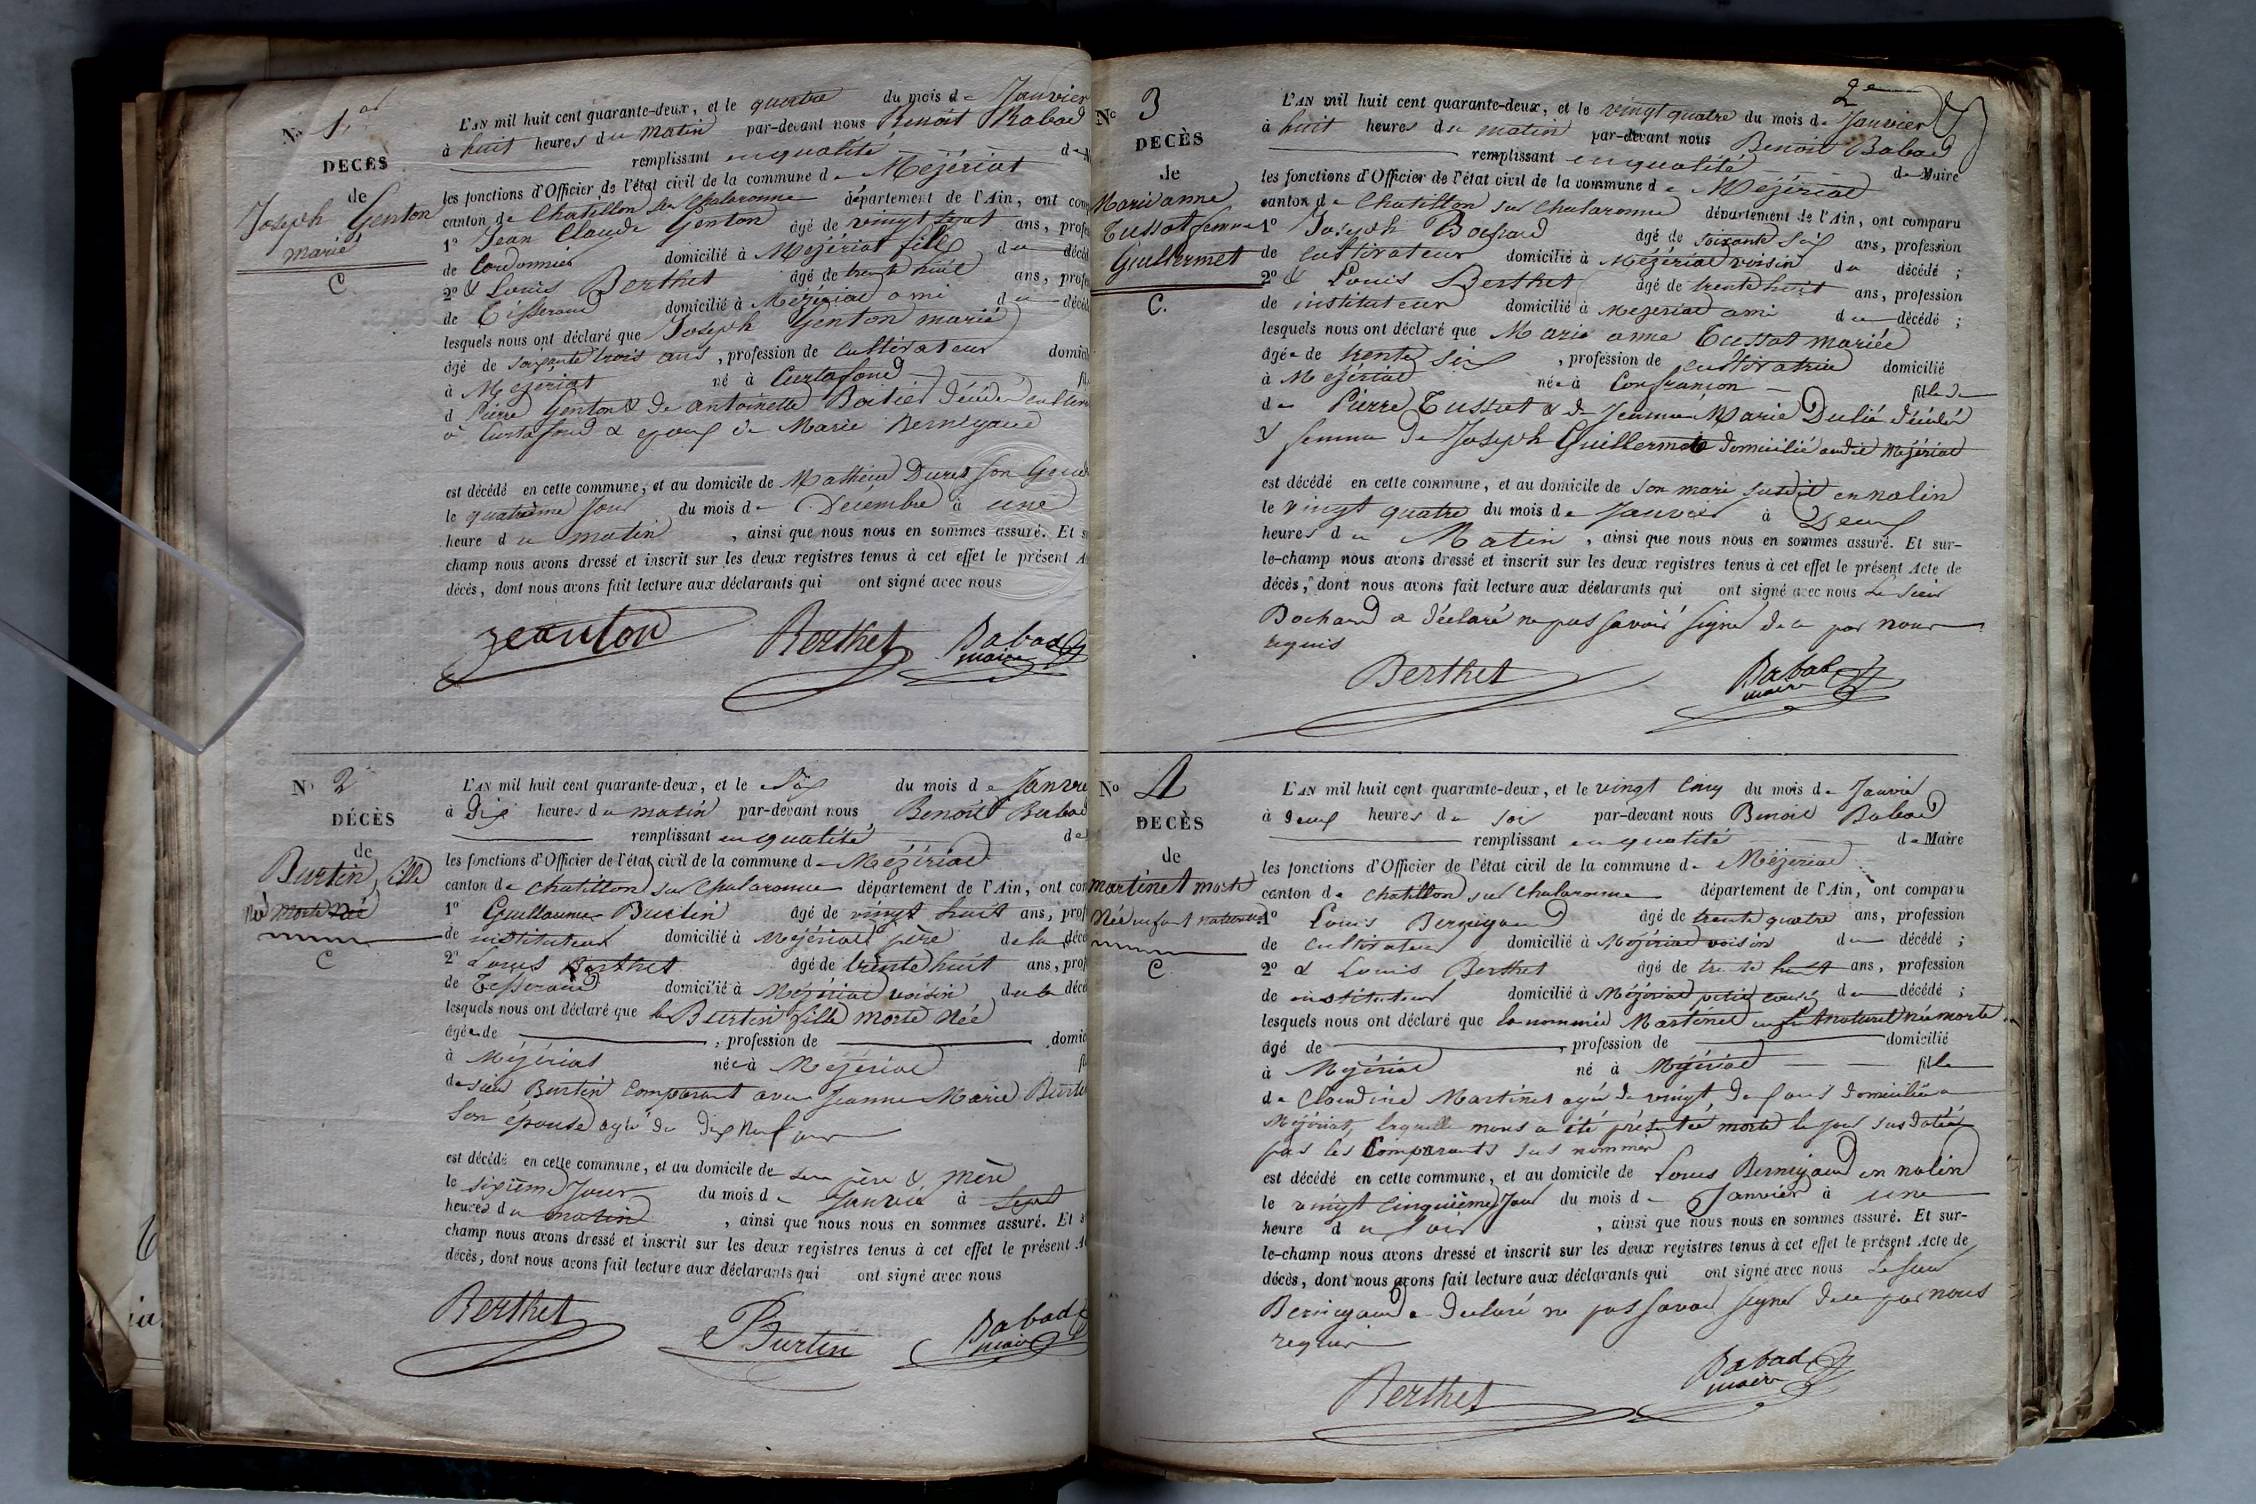 No 1.er
DECÈS
de
Joseph Genton
marié
C
L'AN mil huit cent quarante-deux, et le quatre du mois de Janvier
à huit heures du matin par-devant nous Benoit Babad
remplissant en qualité de
les fonctions d'Officier de l'état civil de la commune de Mézériat
canton de Chatillon sur Chalaronne département de l'Ain, ont com
1° Jean Claude Genton âgé de vingt sept ans, profe
de Cordonnier domicilié à Mézériat fils du décéd
2° & Louis Berthet âgé de trente huit ans, profe
de Tisserand domicilié à Mézériat ami du décéd
lesquels nous ont déclaré que Joseph Genton marié
âgé de soixante trois ans, profession de Cultivateur domici
à Mézériat né à Curtafond fil
d Pierre Genton & de antoinette décédés
à Curtafond & époux de Marie Bernigaud
est décédé en cette commune, et au domicile de Mathieu Duret son
le quatrième Jour du mois de Décembre à une
heure du matin, ainsi que nous nous en sommes assuré. Et s
champ nous avons dressé et inscrit sur les deux registres tenus à cet effet le présent A
décès, dont nous avons fait lecture aux déclarants qui ont signé avec nous
Jeanton Berthet Babad
maire
No 2
DÉCÈS
de
Burtin fille
Née morte Née
C
L'AN mil huit cent quarante-deux, et le Six du mois de Janvier
à Dix heures du matin par-devant nous Benoit Babad
remplissant en qualité de
les fonctions d'Officier de l'état civil de la commune de Mézériat
canton de Chatillon sur Chalaronne département de l'Ain, ont com
1° Guillaume Burtin âgé de vingt huit ans, prof
de instituteur domicilié à Mézériat père de la décé
2° & Louis Berthet âgé de trente huit ans, prof
de Tisserand domicilié à Mézériat voisin de la décé
lesquels nous ont déclaré que la Burtin fille morte Née
âgée de, profession de domic
à Mézériat née à Mézériat fi
de sieur Burtin Comparant avec Jeanne Marie
Son épouse agée de dix neuf ans
est décédé en cette commune, et au domicile de son père & mère
le sixième Jour du mois de Janvier à Sept
heures du matin, ainsi que nous nous en sommes assuré. Et s
champ nous avons dressé et inscrit sur les deux registres tenus à cet effet le présent A
décès, dont nous avons fait lecture aux déclarants qui ont signé avec nous
Berthet Burtin Babad
maire
2e
No 3
DECÈS
de
Marie anne
Tussot femme
Guillermet
C.
L'AN mil huit cent quarante-deux, et le vingt quatre du mois de Janvier
à huit heures du matin par-devant nous Benoit Babad
remplissant en qualité de Maire
les fonctions d'Officier de l'état civil de la commune de Mézériat
canton de Chatillon sur Chalaronne département de l'Ain, ont comparu
1° Joseph Bochard âgé de soixante six ans, profession
de Cultivateur domicilié à Mézériat voisin du décédé ;
2° & Louis Berthet âgé de trente huit ans, profession
de instituteur domicilié à Mézériat ami du décédé ;
lesquels nous ont déclaré que Marie anne Tussot mariée
âgée de trente six, profession de cultivatrice domicilié
à Mézériat née à Confrançon fille de
de Pierre Tussot & de Jeanne Marie Dulié décédés
& femme de Joseph Guillermet domicilié audit Mézériat
est décédé en cette commune, et au domicile de son mari susdit en nolin
le vingt quatre du mois de Janvier à Deux
heures du Matin, ainsi que nous nous en sommes assuré. Et sur-
le-champ nous avons dressé et inscrit sur les deux registres tenus à cet effet le présent Acte de
décès, dont nous avons fait lecture aux déclarants qui ont signé avec nous Le Sieur
Bochard a déclaré ne pas savoir signé de ce par nous
requis
Berthet Babad
maire
No 4
DECÈS
de
Martinet morte
Née enfant naturel
C
L'AN mil huit cent quarante-deux, et le vingt Cinq du mois de Janvier
à deux heures du soir par-devant nous Benoit Babad
remplissant en qualité de Maire
les fonctions d'Officier de l'état civil de la commune de Mézériat
canton de Chatillon sur Chalaronne département de l'Ain, ont comparu
1° Louis Bernigaud âgé de trente quatre ans, profession
de Cultivateur domicilié à Mézériat voisin du décédé ;
2° & Louis Berthet âgé de trente huit ans, profession
de instituteur domicilié à Mézériat petit cousin du décédé ;
lesquels nous ont déclaré que la nommée Martinet enfant naturel née morte
âgé de, profession de domicilié
à Mézériat né à Mézériat fille
de Claudine Martinet agée de vingt deux ans domiciliée a
Mézériat, laquelle nous a été présentée morte le jour susdatée
par les Comparants sus nommés
est décédé en cette commune, et au domicile de Louis Bernigaud en nolin
le vingt Cinquième Jour du mois de Janvier à une
heure du soir, ainsi que nous nous en sommes assuré. Et sur-
le-champ nous avons dressé et inscrit sur les deux registres tenus à cet effet le présent Acte de
décès, dont nous avons fait lecture aux déclarants qui ont signé avec nous Le sieur
Bernigaud a déclaré ne pas savoir signé de ce par nous
requis
Berthet Babad
maire